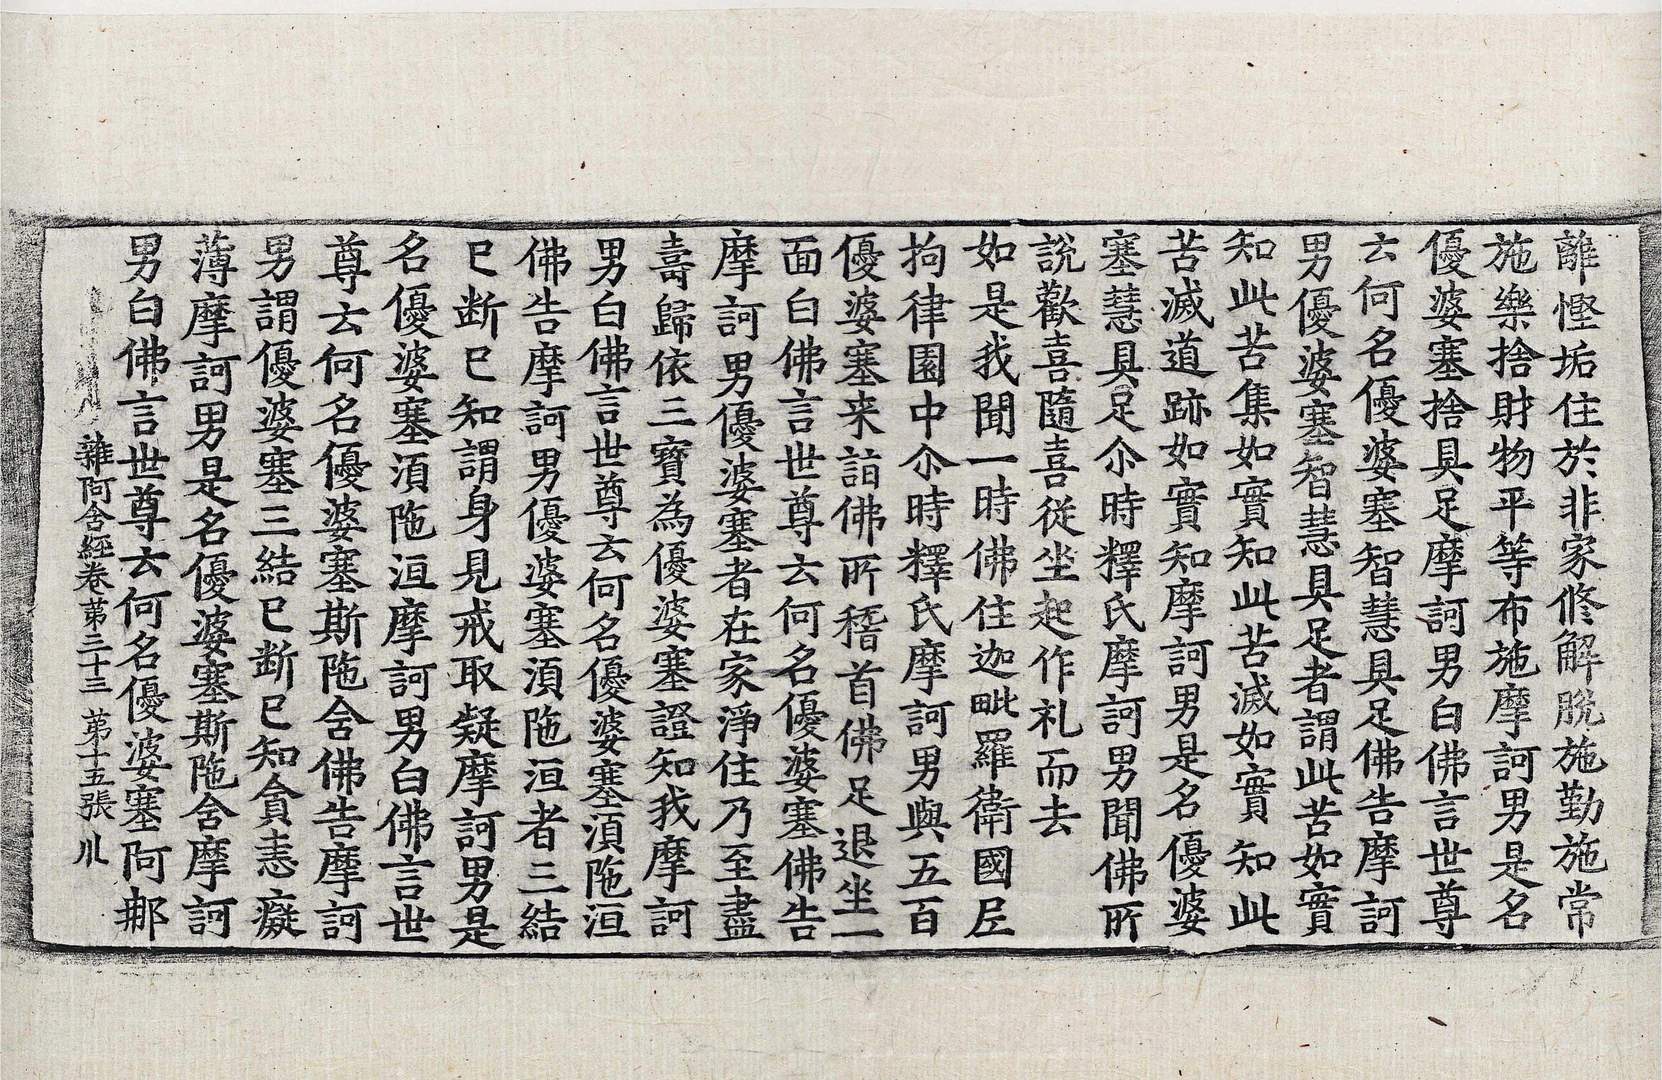 離慳垢住於非家修解脫施勤施常
施樂捨財物平等布施摩訶男是名
優婆塞捨具足摩訶男白佛言世尊
云何名優婆塞智慧具足佛告摩訶
男優婆塞智慧具足者謂此苦如實
知此苦集如實知此苦滅如實知此
苦滅道跡如實知摩訶男是名優婆
塞慧具足尒時釋氏摩訶男聞佛所
說歡喜隨喜從坐起作礼而去
如是我聞一時佛住迦毗羅衛國尼
拘律園中尒時釋氏摩訶男與五百
優婆塞来詣佛所稽首佛足退坐一
面白佛言世尊云何名優婆塞佛告
摩訶男優婆塞者在家淨住乃至盡
壽歸依三寶為優婆塞證知我摩訶
男白佛言世尊云何名優婆塞湏陁洹
佛告摩訶男優婆塞湏陁洹者三結
已断已知謂身見戒取疑摩訶男是
名優婆塞湏陁洹摩訶男白佛言世
尊云何名優婆塞斯陁含佛告摩訶
男謂優婆塞三結已断已知貪恚癡
薄摩訶男是名優婆塞斯陁含摩訶
男白佛言世尊云何名優婆塞阿那
雜阿含經卷第三十三 第十五張